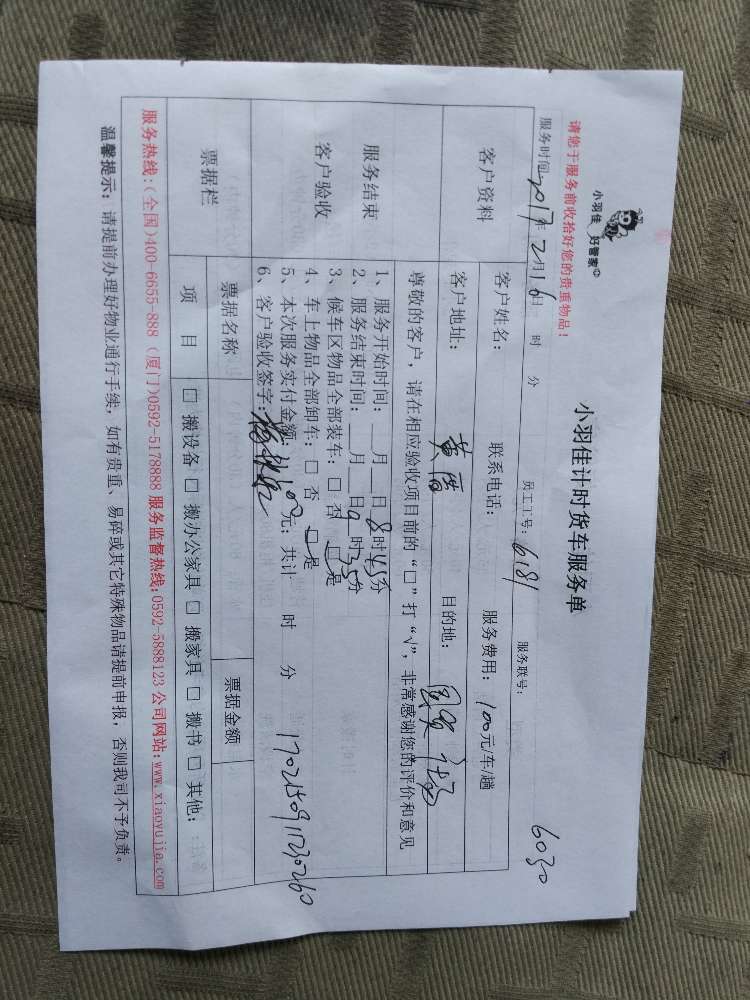 小羽佳 好管家
小羽佳计时货车服务单
请您于服务前收拾好您的贵重物品！
6030
服务时间 2017年2月16日 时 分 员工工号：6181 服务联号：
客户资料
客户姓名： 联系电话： 服务费用：100元/车/趟
客户地址：黄厝 目的地：
服务结束
客户验收
尊敬的客户，请在相应验收项目前的“□”打“√”，非常感谢您的评价和意见
1、服务开始时间：__月__日8时45分
2、服务结束时间：__月__日9时35分
3、候车区物品全部装车：□ 否 □ 是
4、车上物品全部卸车：□ 否 □ 是
5、本次服务实付金额：100元；共计 时 分
6、客户验收签字：
1702150911230260
票据栏
票据名称 票据金额
项 目 □ 搬设备 □ 搬办公家具 □ 搬家具 □ 搬书 □ 其他：
服务热线：(全国)400-6655-888 (厦门)0592-5178888 服务监督热线：0592-5888123 公司网站：www.xiaoyujia.com
温馨提示：请提前办理好物业通行手续，如有贵重、易碎或其它特殊物品请提前申报，否则我司不予负责。